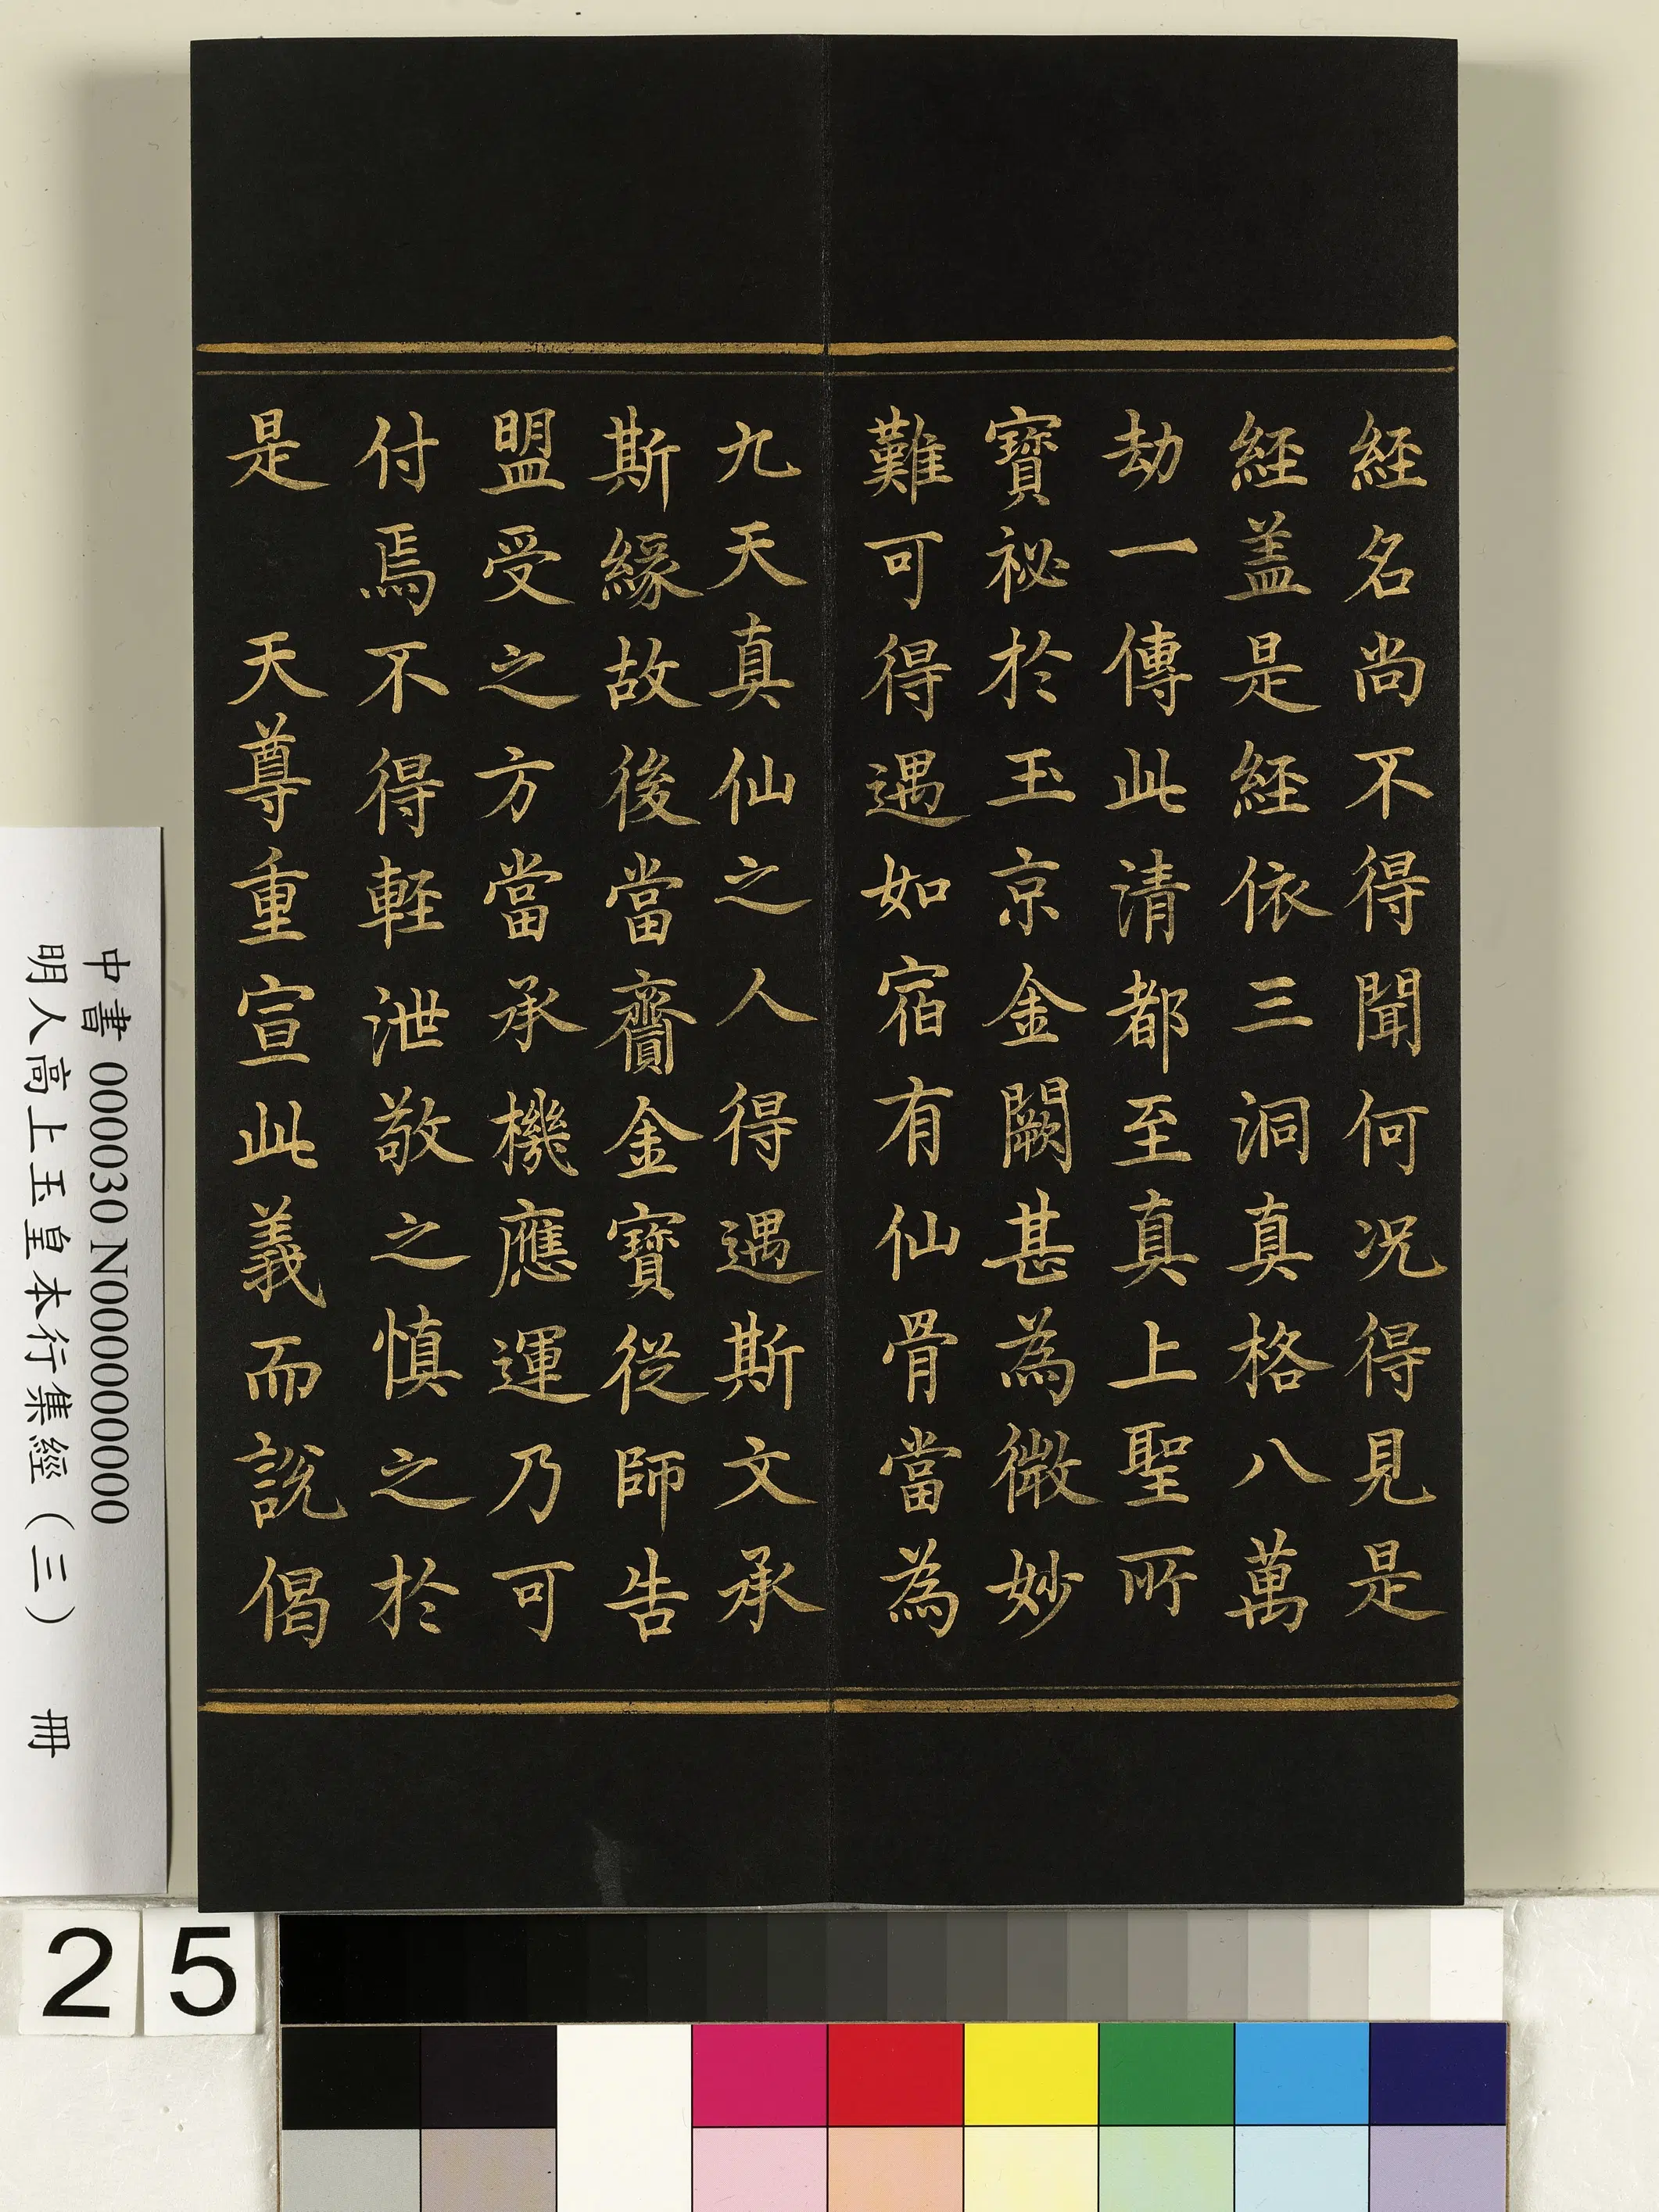 經名尚不得聞何况得見是
經盖是經依三洞真格八萬
劫一傳此清都至真上聖所
寶祕於玉京金闕甚為微妙
難可得遇如宿有仙骨當為
九天真仙之人得遇斯文承
斯緣故後當齎金寶從師告
盟受之方當承機應運乃可
付焉不得輕泄敬之慎之於
是　天尊重宣此義而說偈
中書 000030 N000000000
明人高上玉皇本行集經（三）　冊
25